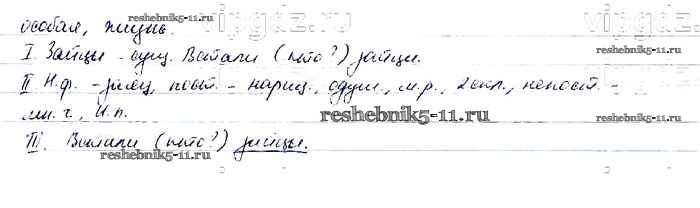 особая, жизнь.
I Зайцы - сущ. Встали (кто?) зайцы.
II Н.ф. - заяц, пост. - нариц., одуш., м.р., 2 скл., непост. -
мн.ч., И.п.
III. Встали (кто?) зайцы.
reshebnik5-11.ru
reshebnik5-11.ru
reshebnik5-11.ru
reshebnik5-11.ru
reshebnik5-11.ru
vipgdz.ru